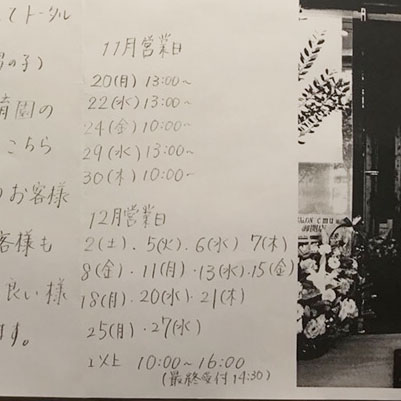 てトータル
男の子)
育園の
こちら
のお客様
客様も
良い様
ます。
11月営業日
20(月) 13:00~
22(水) 13:00~
24(金) 10:00~
29(水) 13:00~
30(木) 10:00~
12月営業日
2(土)・5(火)・6(水) 7(木)
8(金)・11(月)・13(水)・15(金)
18(月)・20(水)・21(木)
25(月)・27(水)
以上 10:00~16:00
(最終受付 14:30)